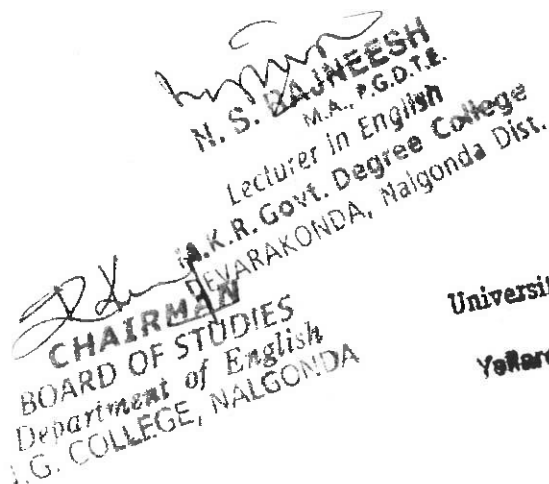 N. S. RAJNEESH
M.A., P.G.D.T.E.
Lecturer in English
M.K.R. Govt. Degree College
DEVARAKONDA, Nalgonda Dist.
CHAIRMAN
BOARD OF STUDIES
Department of English
.G. COLLEGE, NALGONDA
Universit